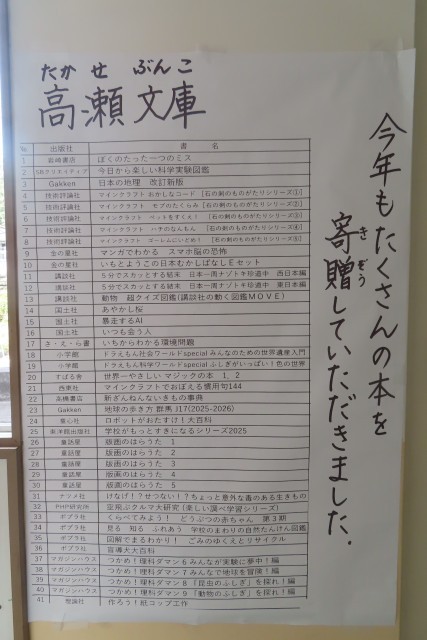 たかせ ぶんこ
高瀬文庫
今年もたくさんの本を
寄贈していただきました。
きぞう
№ 出版社 書 名
1 岩崎書店 ぼくのたった一つのミス
2 SBクリエイティブ 今日から楽しい科学実験図鑑
3 Gakken 日本の地理 改訂新版
4 技術評論社 マインクラフト おかしなコード [石の剣のものがたりシリーズ①]
5 技術評論社 マインクラフト セブのたくらみ [石の剣のものがたりシリーズ②]
6 技術評論社 マインクラフト ペットをすくえ! [石の剣のものがたりシリーズ③]
7 技術評論社 マインクラフト ハチのなんもん [石の剣のものがたりシリーズ④]
8 技術評論社 マインクラフト [石の剣のものがたりシリーズ⑤]
9 金の星社 マンガでわかる スマホ脳の恐怖
10 金の星社 いもとようこの日本むかしばなしEセット
11 講談社 5分でスカッとする結末 日本一周ナゾトキ珍道中 西日本編
12 講談社 5分でスカッとする結末 日本一周ナゾトキ珍道中 東日本編
13 講談社 動物 超クイズ図鑑(講談社の動く図鑑MOVE)
14 国土社 あやかし桜
15 国土社 暴走するAI
16 国土社 いつも会う人
17 さ・え・ら書 いちからわかる環境問題
18 小学館 ドラえもん社会ワールドspecial みんなのための世界遺産入門
19 小学館 ドラえもん科学ワールドspecial ふしぎがいっぱい!色の世界
20 すばる舎 世界一やさしいマジックの本 1、2
21 西東社 マインクラフトでおぼえる慣用句144
22 高橋書店 新ざんねんないきもの事典
23 Gakken 地球の歩き方 群馬 J17(2025-2026)
24 童心社 ロボットがおたすけ!大百科
25 東洋館出版社 学校がもっとすきになるシリーズ2025
26 童話屋 版画のはらうた 1
27 童話屋 版画のはらうた 2
28 童話屋 版画のはらうた 3
29 童話屋 版画のはらうた 4
30 童話屋 版画のはらうた 5
31 ナツメ社 けなげ!?せつない!?ちょっと意外な毒のある生きもの
32 PHP研究所 空飛ぶクルマ大研究(楽しい調べ学習シリーズ)
33 ポプラ社 くらべてみよう! どうぶつの赤ちゃん 第3期
34 ポプラ社 見る 知る ふれあう 学校のまわりの自然たんけん図鑑
35 ポプラ社 図解でまるわかり! ごみのゆくえとリサイクル
36 ポプラ社 盲導犬大百科
37 マガジンハウス つかめ!理科ダマン6 みんなが実験に夢中!編
38 マガジンハウス つかめ!理科ダマン7 みんなで地球を冒険!編
39 マガジンハウス つかめ!理科ダマン8 「昆虫のふしぎ」を探れ!編
40 マガジンハウス つかめ!理科ダマン9 「動物のふしぎ」を探れ!編
41 理論社 作ろう!紙コップ工作